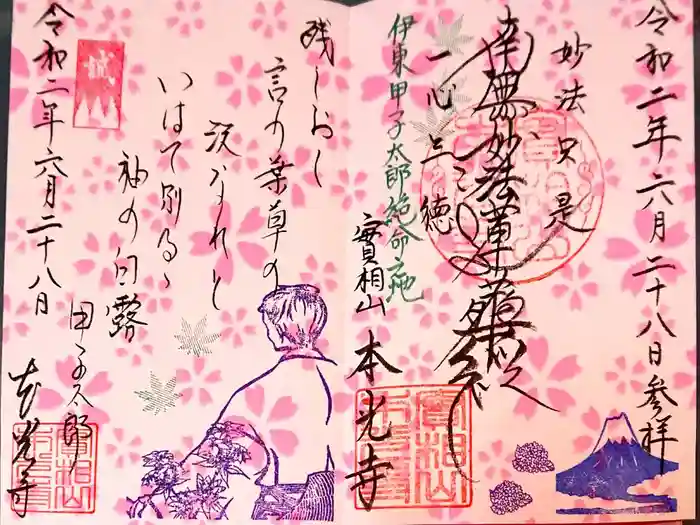 令和二年六月二十八日参拝
妙法只是
南無妙法蓮華経
一心三徳
伊東甲子太郎絶命之地
實相山 本光寺
残しおく
言の葉草の
いはで別るゝ
袖の白露
甲子太郎
本光寺
令和二年六月二十八日
誠